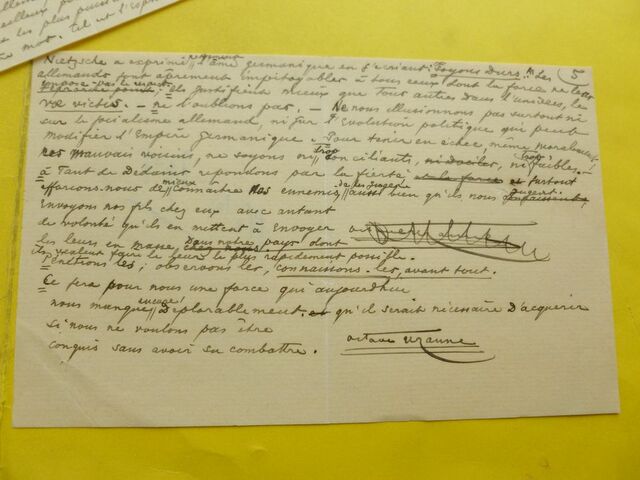 mot. tel et l'esp
Nietzsche a exprimé l'âme germanique en s'écriant: Soyons Durs! Les 5
allemands sont âprement impitoyables à tous ceux dont la force ne leur
impose pas le respect; Ils justifieront mieux que tous autres dans l'univers, le
væ victis. – ne l'oublions pas. – Ne nous illusionnons pas surtout ni
sur le socialisme allemand, ni sur l'Evolution politique qui peut
modifier l'Empire germanique. – Pour tenir en échec, même moralement
ces mauvais voisins, ne soyons ni trop conciliants, ni dociles, ni trop faibles.
à Tant de Dédains repondons par la fierté, et surtout
efforçons-nous de mieux connaître nos ennemis, aussi bien qu'ils nous jugent.
Envoyons nos fils chez eux avec autant
de volonté qu'ils en mettent à Envoyer
les leurs en masse, Dans notre pays dont
ils veulent faire le leur le plus rapidement possible.
Pénétrons les; observons les, connaissons-les, avant tout.
Ce sera pour nous une force qui aujourdhui
nous manque encore! Déplorablement. et qu'il serait nécessaire D'acquerir
si nous ne voulons pas être
conquis sans avoir su combattre.
octave uzanne